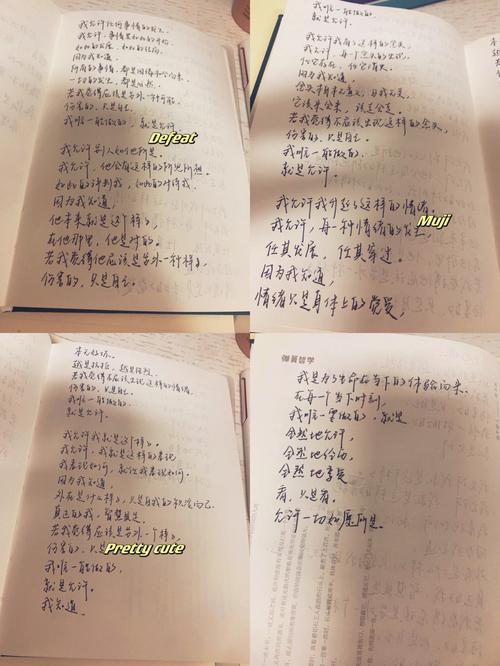 我允许任何事情的发生
我允许,事情是如此的开始
如此的发展,如此的结局
因为我知道
所有的事情,都是因缘和合而来
一切的发生,都是必然
若我觉得应该是另外一种可能
伤害的,只是自己
我唯一能做的,就是允许
Defeat
我允许别人如他所是。
我允许,他会有这样的所思所想
如此的评判我,如此的对待我
因为我知道,
他本来就是这个样子,
在他那里,他是对的。
若我觉得他应该是另外一种样子,
伤害的,只是自己
我唯一能做的,
就是允许。
我允许我有了这样的念头,
我允许,每一个念头的出现,
任它存在,任它消失
因为我知道,
念头本身本无意义,与我无关,
它该来会来,该走会走。
若我觉得不应该出现这样的念头,
伤害的,只是自己
我唯一能做的,
就是允许。
我允许我升起了这样的情绪,
我允许,每一种情绪的发生,
Muji
任其发展,任其穿过。
因为我知道,
情绪只是身体上的觉受,
本无好坏。
越是抗拒,越是强烈
若我觉得不应该出现这样的情绪,
伤害的,只是自己
我唯一能做的,
就是允许。
我允许我就是这个样子。
我允许,我就是这样的表现
我表现如何,就任我表现如何。
因为我知道,
外在是什么样子,只是自我的积淀而已
真正的我,智慧具足。
若我觉得应该是另外一个样子,
伤害的,只是自己
Pretty cute
我唯一能做的,
就是允许。
我知道
弹簧哲学
我是为了生命在当下的体验而来。
在每一个当下时刻
我唯一要做的,就是
全然地允许,
全然地经历
全然地享受
看,只是看。
允许一切如其所是